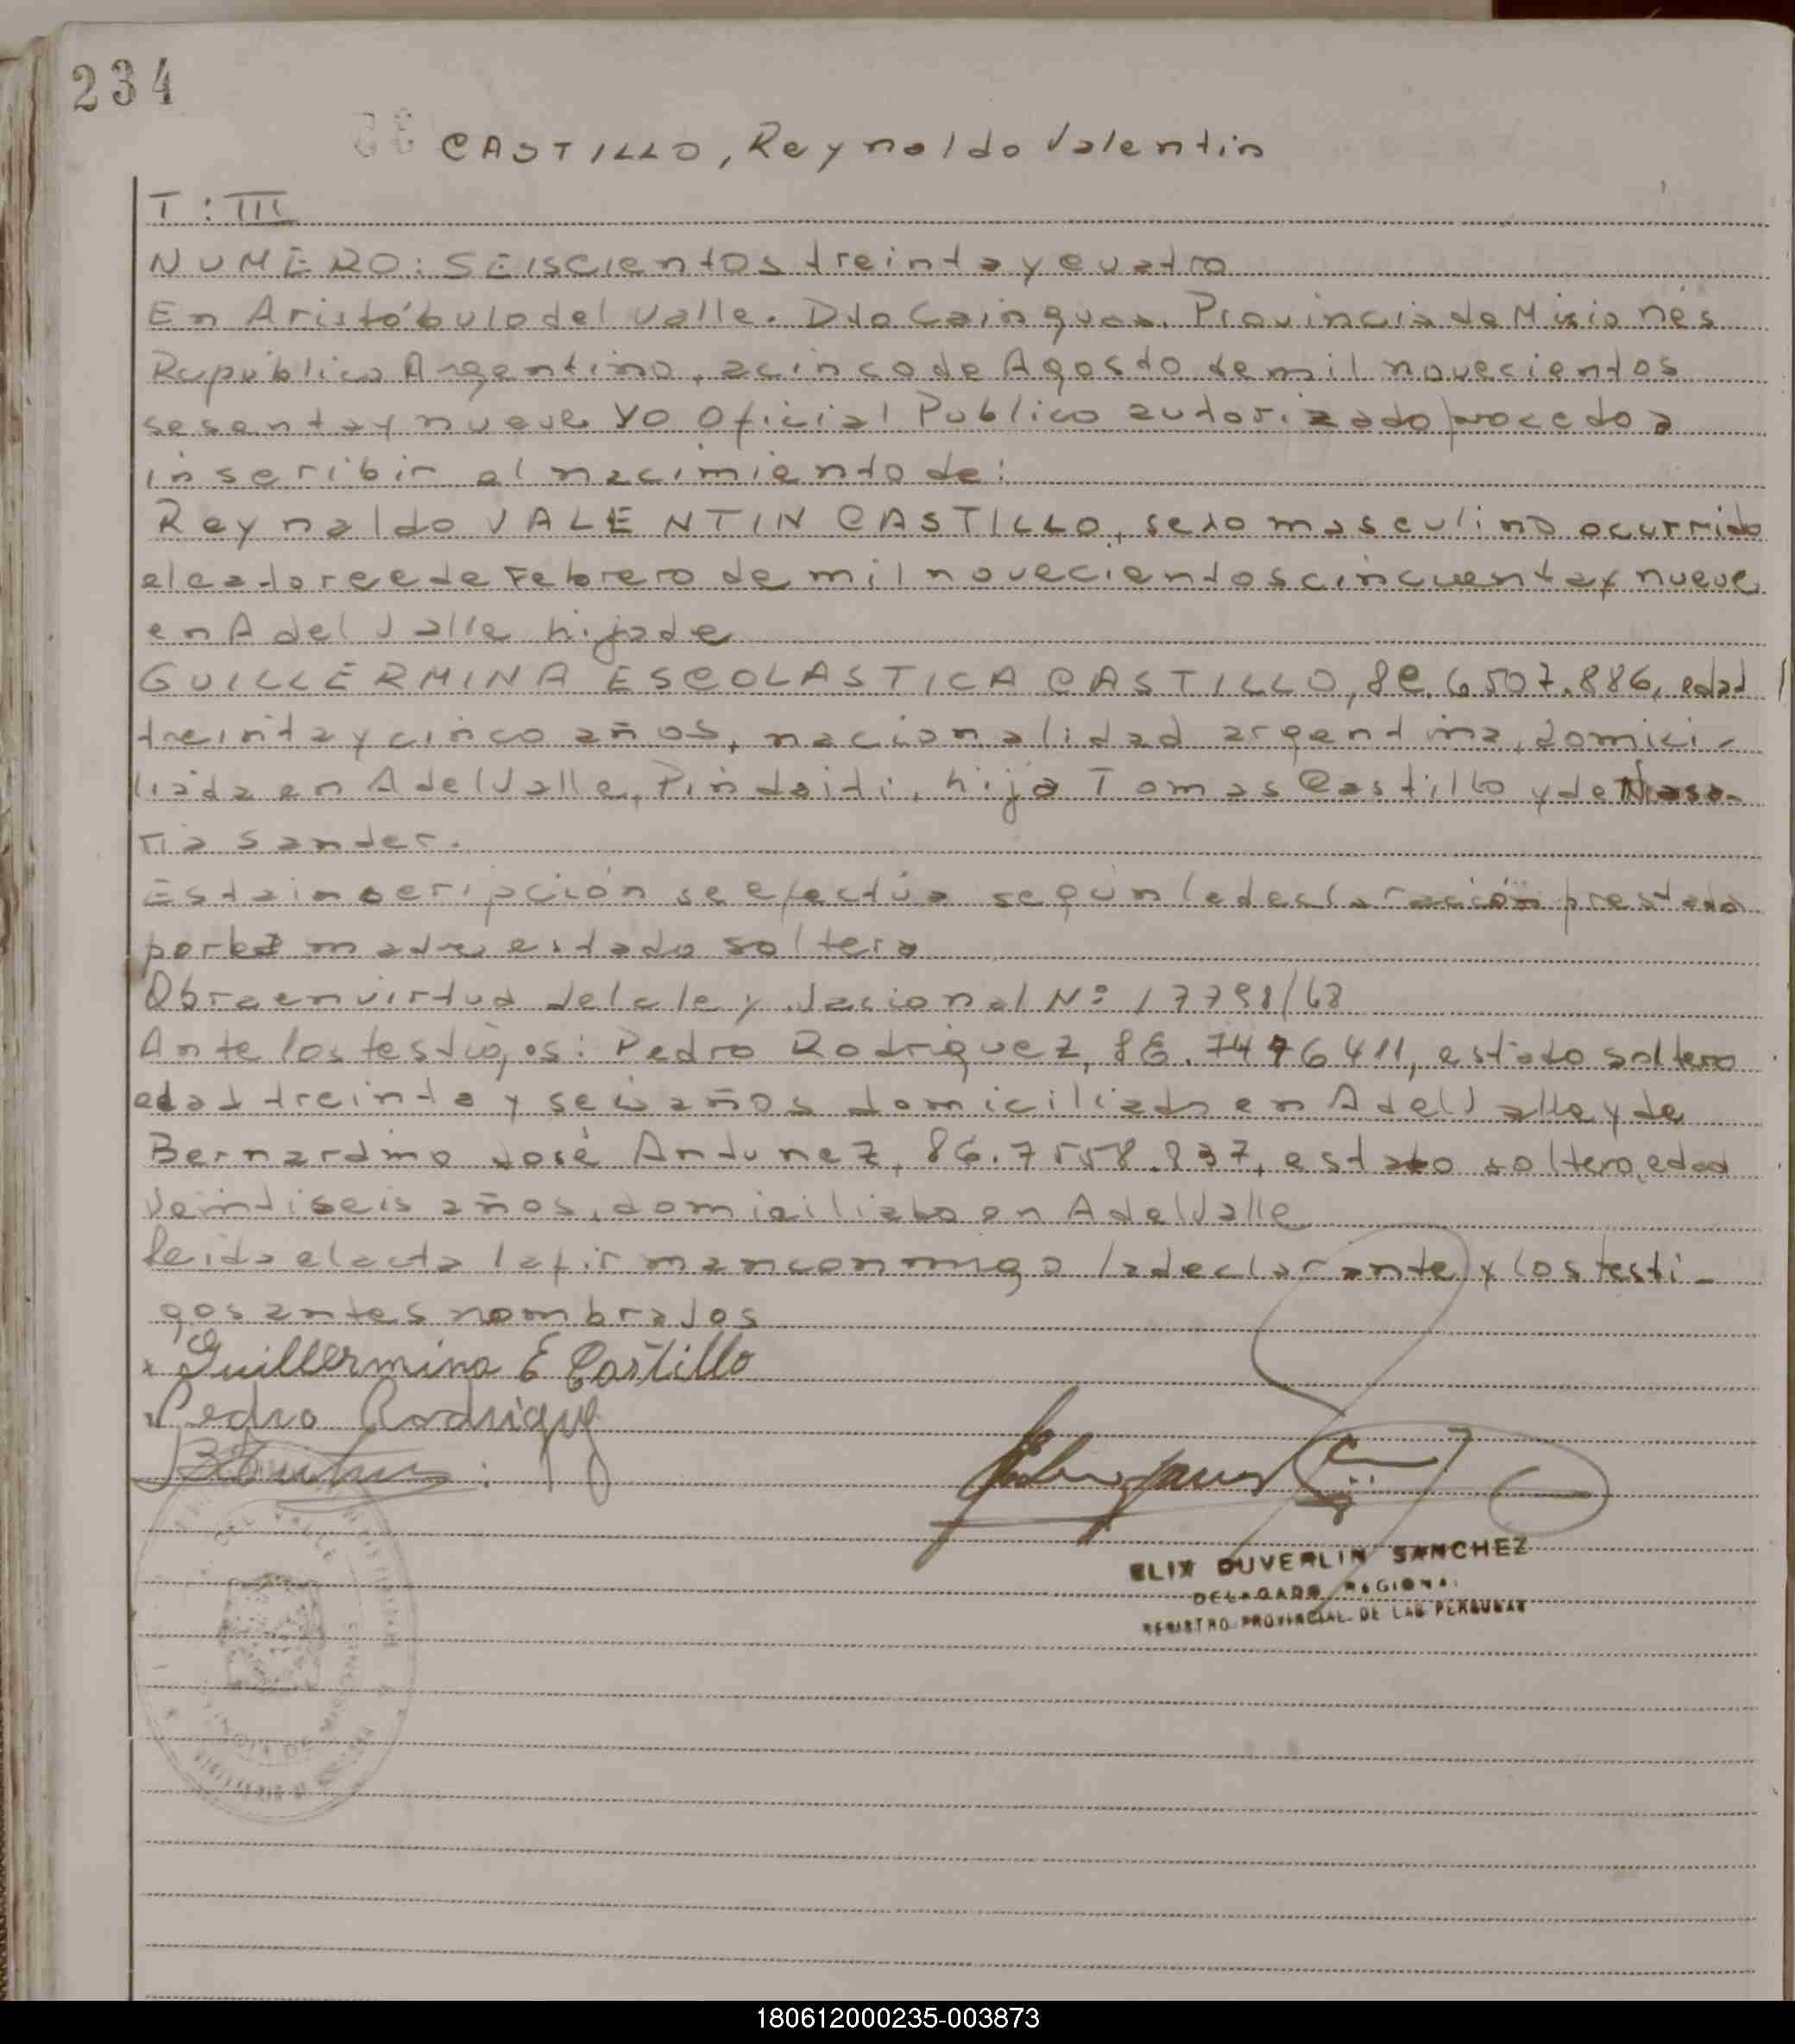 234
CASTILLO, Reynaldo Valentin
T: III
NUMERO: SEIScientos treinta y cuatro
En Aristóbulo del Valle. Dto Cainguas. Provincia de Misiones
República Argentina, a cinco de Agosto de mil novecientos
sesenta y nueve Yo Oficial Publico autorizado procedo a
inscribir el nacimiento de:
Reynaldo VALENTIN CASTILLO, sexo masculino ocurrido
el catorce de Febrero de mil novecientos cincuenta y nueve
en A del Valle hijo de
GUILLERMINA ESCOLASTICA CASTILLO, 6507.886, edad
treinta y cinco años, nacionalidad argentina, domici-
liada en A del Valle, Pindaiti, hija Tomas Castillo y de
ria Sander.
Esta inscripción se efectúa según la declaración prestada
por la madre estado soltera
Obra en virtud de la ley Nacional Nº 17798/68
Ante los testigos: Pedro Rodriguez, 7476411, estado soltero
edad treinta y seis años domiciliado en A del Valle y de
Bernardino José Antunez, 7558.837, estado soltero, edad
veintiseis años, domiciliado en A del Valle
leida el acta la firman conmigo la declarante y los testi-
gos antes nombrados
Guillermina E Castillo
Pedro Rodriguez
DEL VALLE
ELIX DUVERLIN SANCHEZ
DELEGADO REGIONAL
REGISTRO PROVINCIAL DE LAS PERSONAS
180612000235-003873